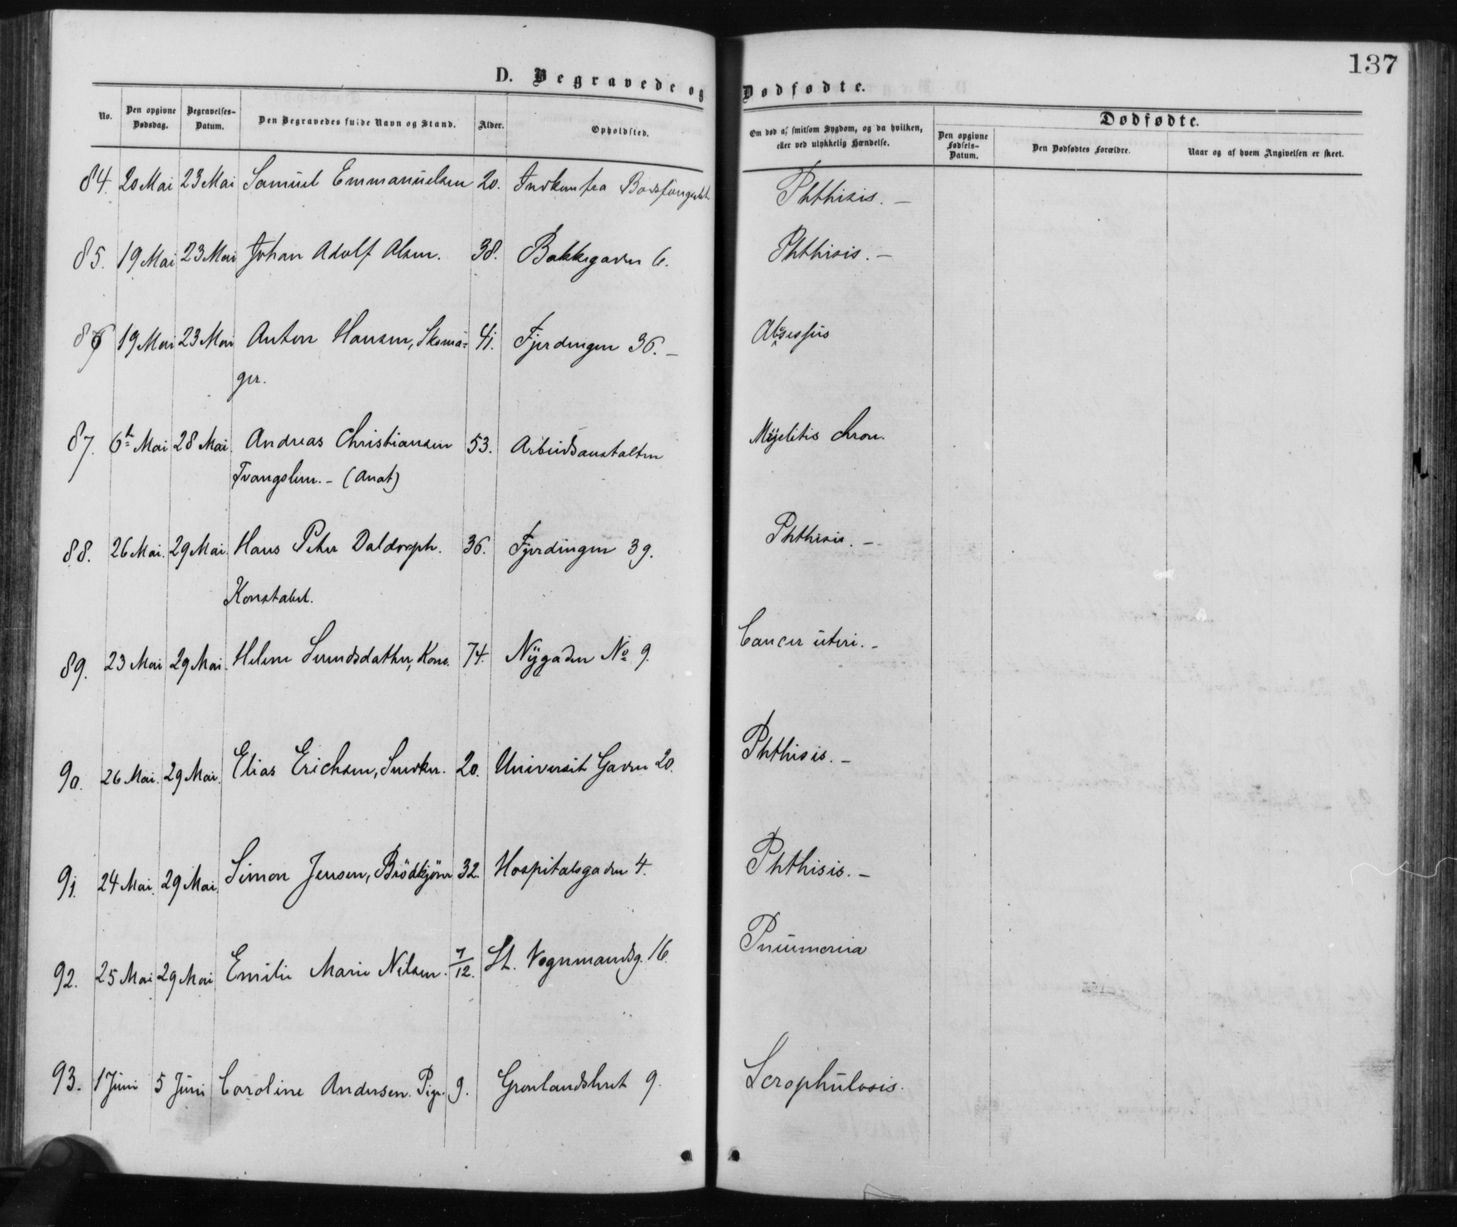 137
D. Begravede og Dødfødte.
No. Den opgivne Dødsdag. Begravelses-Datum. Den Begravedes fulde Navn og Stand. Alder. Opholdsted. Om død af smitsom Sygdom, og da hvilken, eller ved ulykkelig Hændelse.
Dødfødte.
Den opgivne Fødsels-Datum. Den Dødfødtes Forældre. Naar og af hvem Angivelsen er skeet.
84. 20 Mai 23 Mai Samuel Emmanuelsen 20. Indkom fra Bodsfængslet Phthisis. —
85. 19 Mai 23 Mai Johan Adolf Olsen. 38. Bakkegaden 6. Phthisis. —
86 19 Mai 23 Mai Anton Hansen, Skoma- 41. Fjerdingen 36. — Abscessus
ger.
87. 6te Mai 28 Mai Andreas Christiansen 53. Arbeidsanstalten Myelitis chron.
Tvangslem. — (Anat)
88. 26 Mai. 29 Mai. Hans Peter Daldorph. 36. Fjerdingen 39. Phthisis. —
Konstabel.
89. 23 Mai 29 Mai. Helene Svendsdatter, Kone. 74. Nygaden No 9. Cancer uteri. —
90. 26 Mai. 29 Mai. Elias Erichsen, Snedker. 20. Universit Gaden 20. Phthisis. —
91. 24 Mai. 29 Mai. Simon Jensen, Brödkjører 32. Hospitalsgaden 4. Phthisis. —
92. 25 Mai 29 Mai Emilie Marie Nilsen. 7/12. St. Vognmandsg. 16. Pneumonia
93. 1 Juni 5 Juni Caroline Andersen. Pige. 9. Grønlandsleret 9. Scrophulosis.